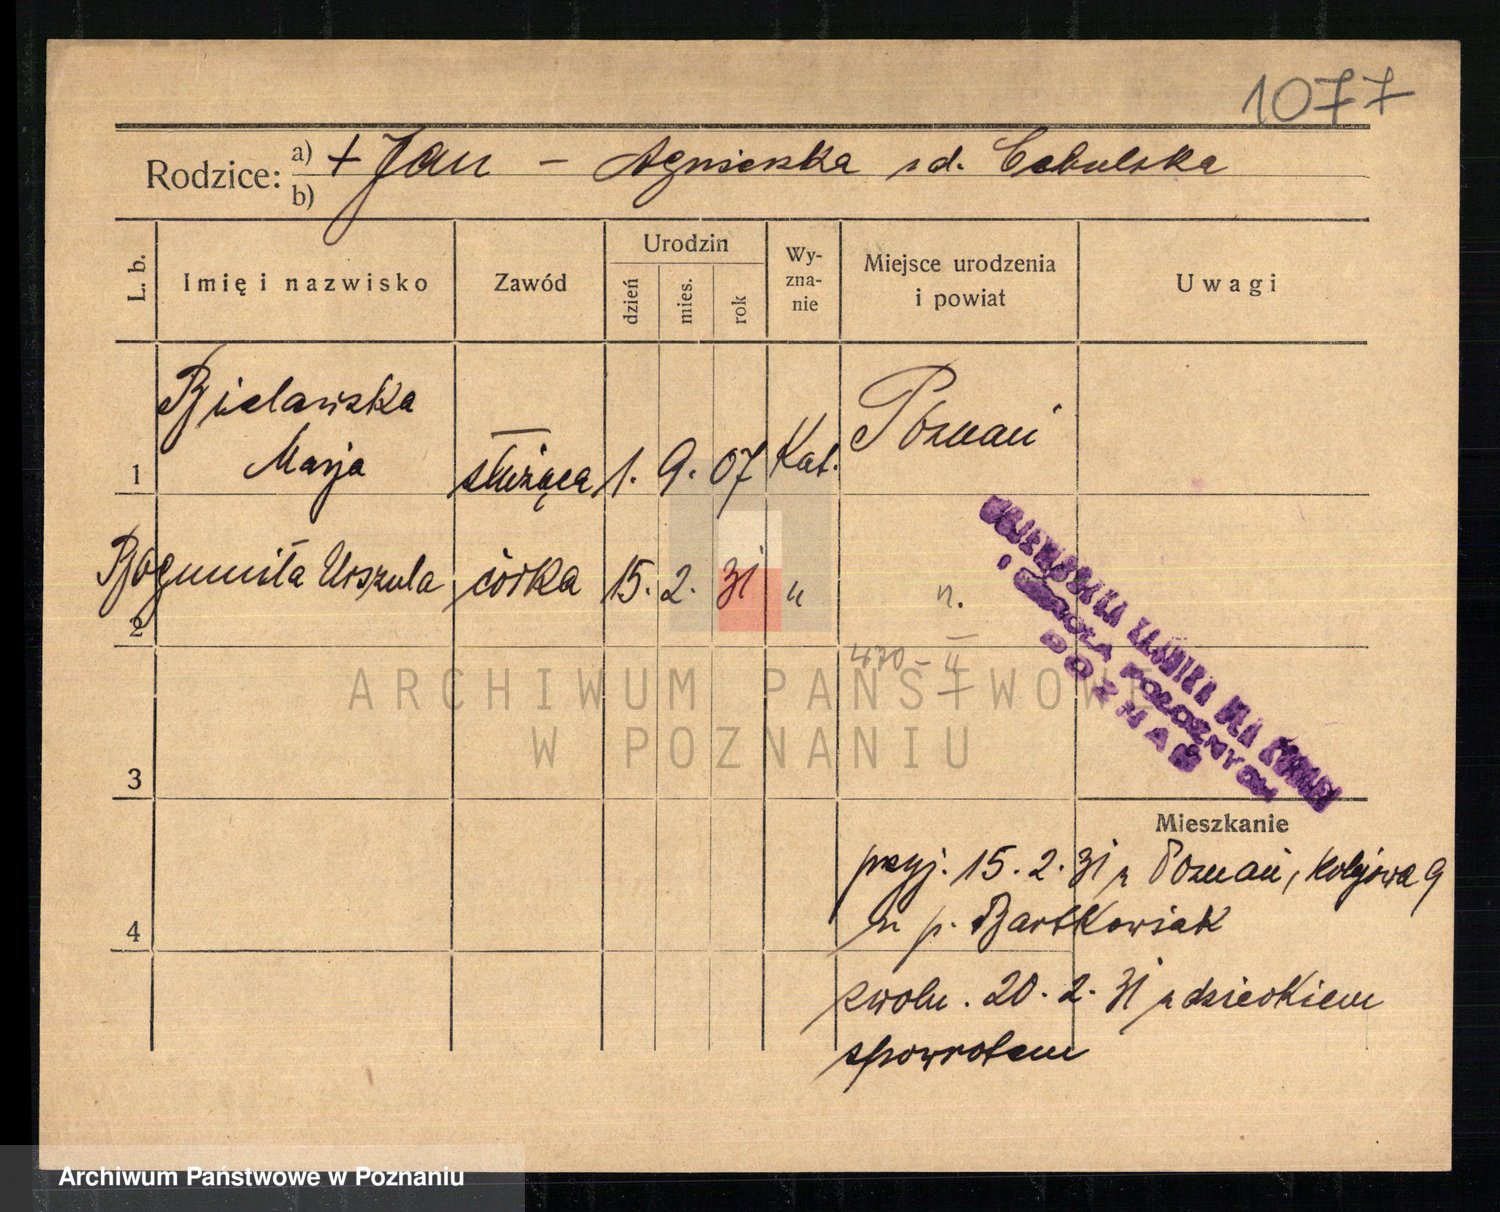 1077
Rodzice: a) + Jan – Agnieszka rd. Cebulska
b)
L. b.
Imię i nazwisko
Zawód
Urodzin
dzień
mies.
rok
Wy-
zna-
nie
Miejsce urodzenia
i powiat
Uwagi
Bielawska
Marja
1 służąca 1. 9. 07 Kat. Poznań
Bogumiła Urszula córka 15. 2. 31 " n.
2
470 – II
WOJEWÓDZKA KLINIKA DLA KOBIET
I SZKOŁA POŁOŻNYCH
POZNAŃ
ARCHIWUM PAŃSTWOWE
W POZNANIU
3
Mieszkanie
przyj. 15. 2. 31 z Poznań, Kolejowa 9
4
u p. Bartkowiak
zwoln. 20. 2. 31 z dzieckiem
spowrotem
Archiwum Państwowe w Poznaniu